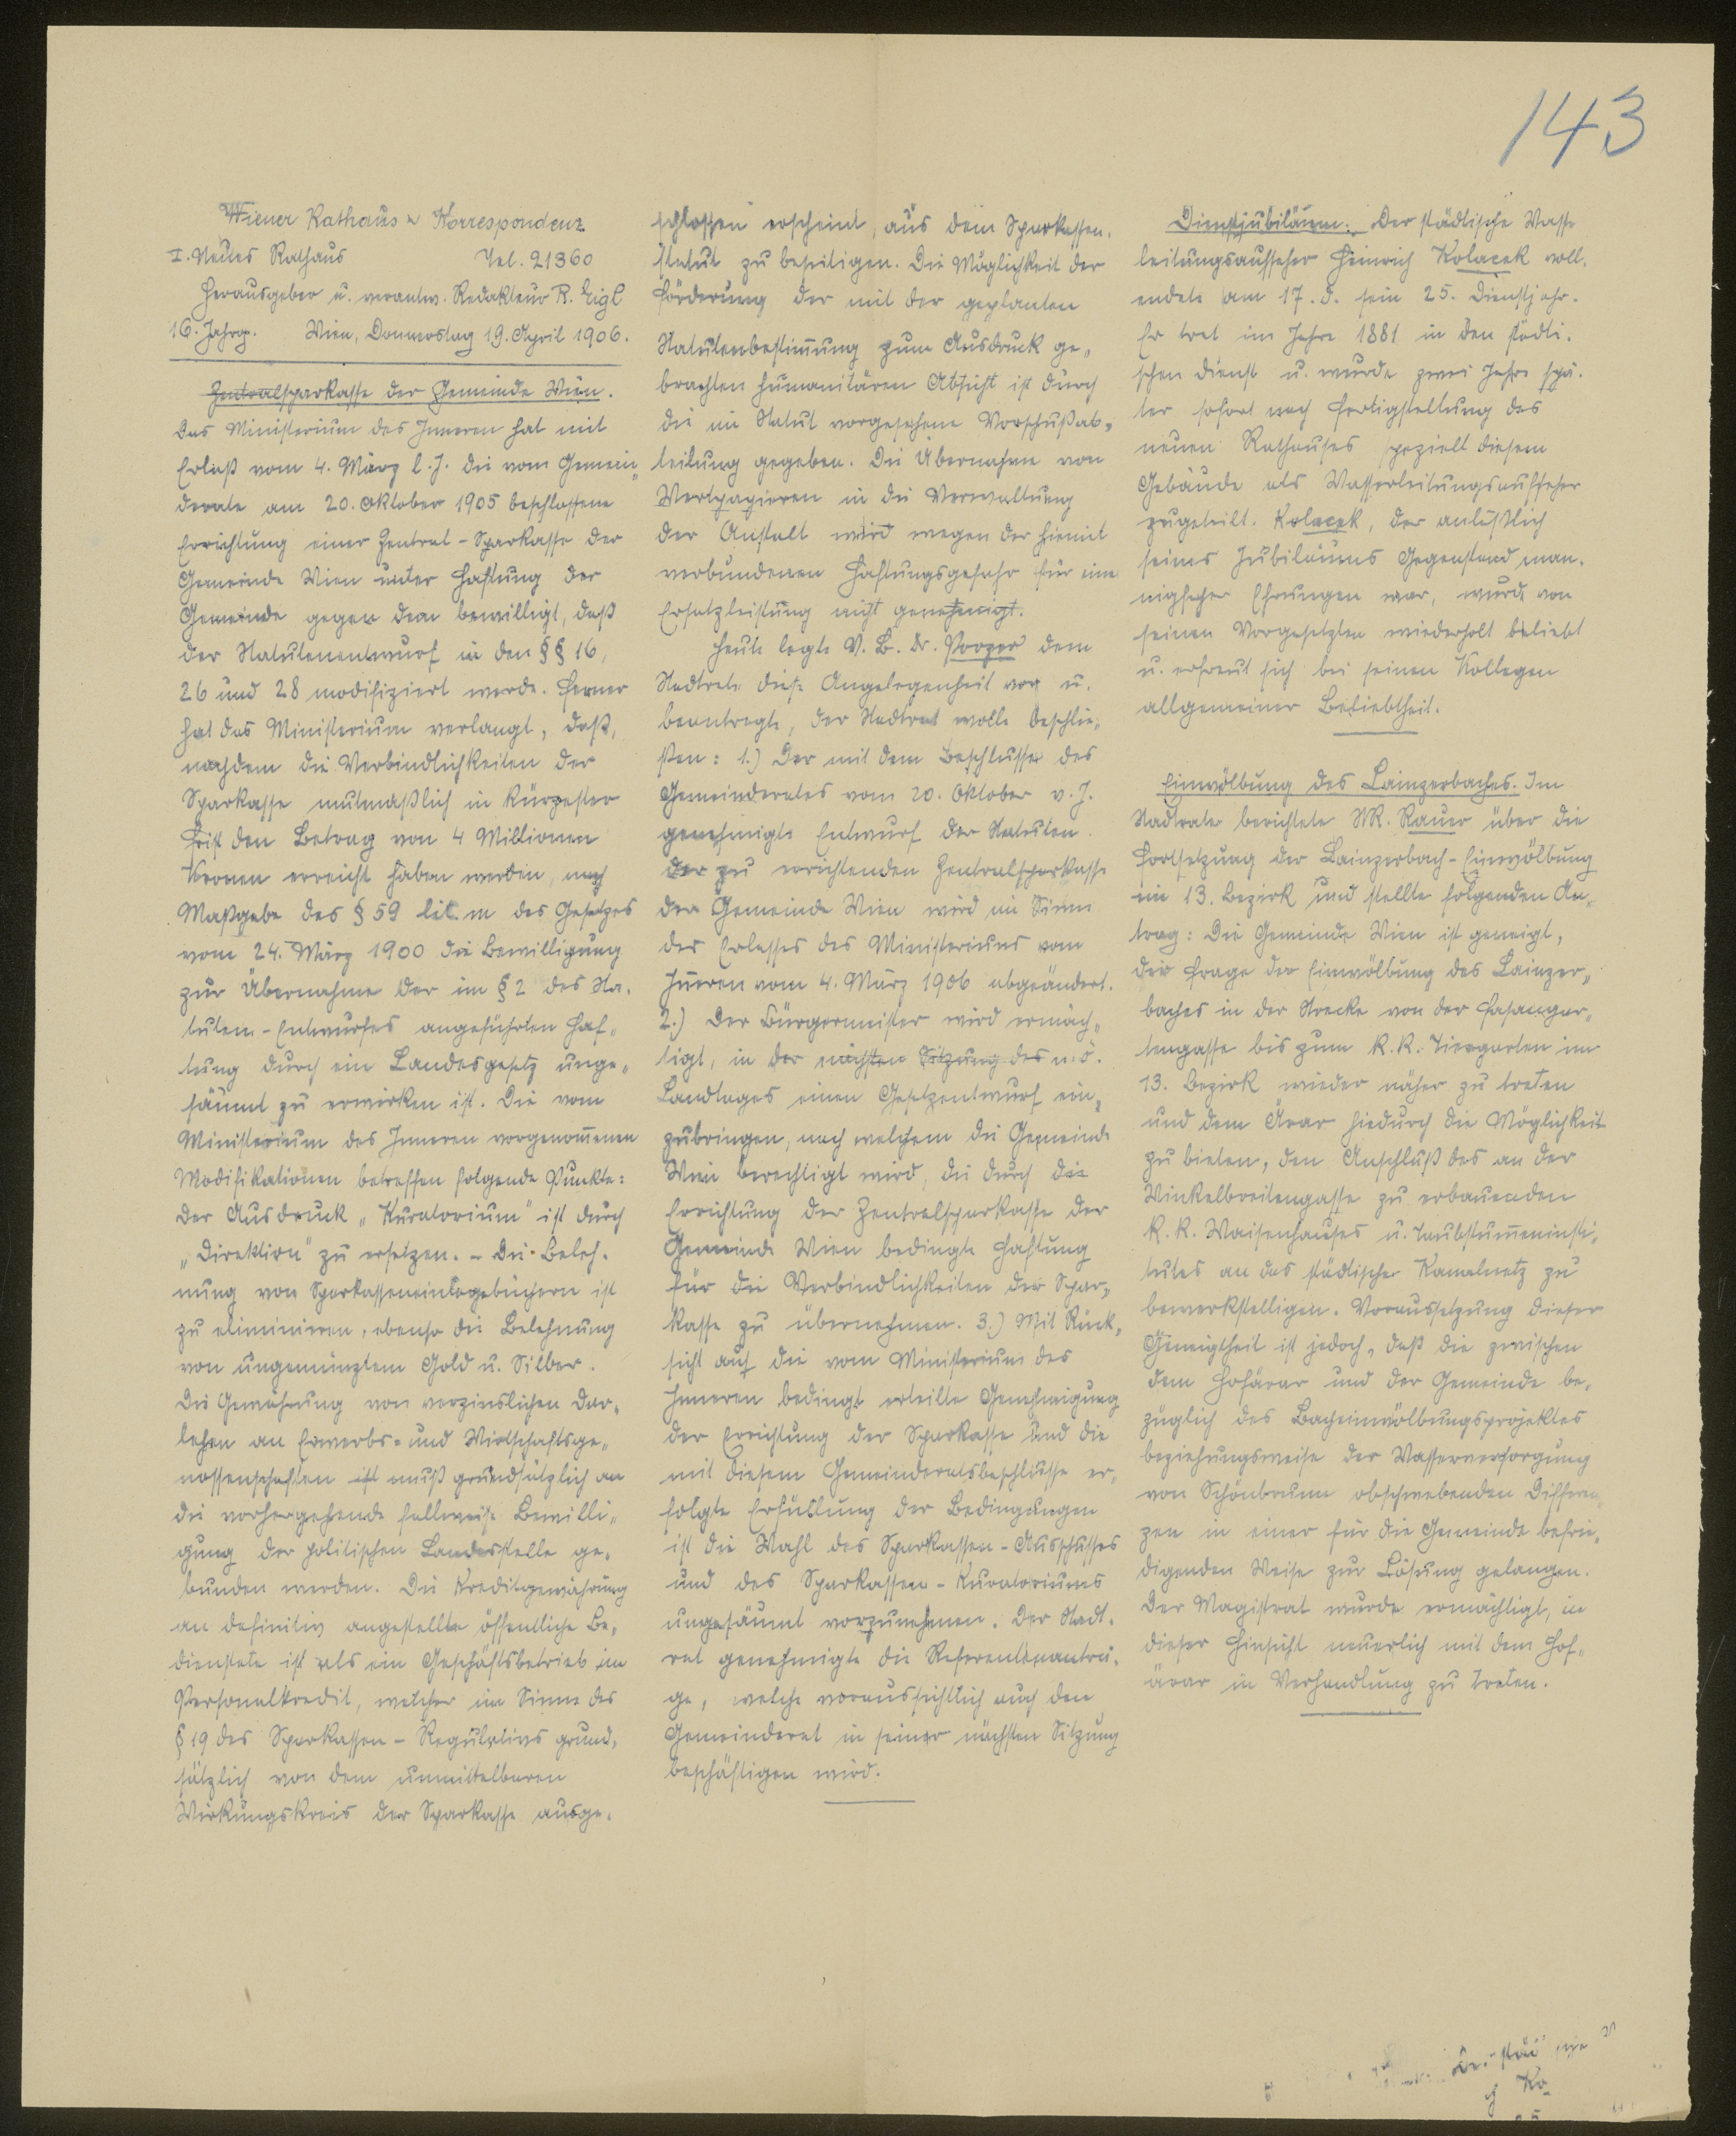 143
Wiener Rathaus-Korrespondenz.
I. Neues Rathaus Tel. 21360
Herausgeber u. verantw. Redakteur R. Eigl
16. Jahrg. Wien, Donnerstag 19. April 1906.
Zentralsparkasse der Gemeinde Wien.
Das Ministerium des Inneren hat mit
Erlaß vom 4. März l. J. die vom Gemein-
derate am 20. Oktober 1905 beschlossene
Errichtung einer Zentral-Sparkasse der
Gemeinde Wien unter Haftung der
Gemeinde gegen dem bewilligt, daß
der Statutenentwurf in den §§ 16,
26 und 28 modifiziert werde. Ferner
hat das Ministerium verlangt, daß,
nachdem die Verbindlichkeiten der
Sparkasse mutmaßlich in kürzester
Frist den Betrag von 4 Millionen
Kronen erreicht haben werden, nach
Maßgabe des § 59 lit. m des Gesetzes
vom 24. März 1900 die Bewilligung
zur Übernahme der im § 2 des Sta-
tuten-Entwurfes angeführten Haf-
tung durch ein Landesgesetz unge-
säumt zu erwirken ist. Die vom
Ministerium des Inneren vorgenom̄enen
Modifikationen betreffen folgende Punkte:
Der Ausdruck „Kuratorium" ist durch
„Direktion" zu ersetzen. - Die Beleh-
nung von Sparkasseneinlagebüchern ist
zu eliminieren, ebenso die Belehnung
von ungemünztem Gold u. Silber.
Die Gewährung von verzinslichen Dar-
lehen an Erwerbs- und Wirtschaftsge-
nossenschaften ist muß grundsätzlich an
die vorhergehende fallweise Bewilli-
gung der politischen Landesstelle ge-
bunden werden. Die Kreditgewährung
an definitiv angestellte öffentliche Be-
dienstete ist als ein Geschäftsbetrieb im
Personalkredit, welcher im Sinne des
§ 19 des Sparkassen-Regulativs grund-
sätzlich von dem unmittelbaren
Wirkungskreis der Sparkasse ausge-
schlossen erscheint, aus dem Sparkassen-
statut zu beseitigen. Die Möglichkeit der
Förderung der mit der geplanten
Statutenbestim̄ung zum Ausdruck ge-
brachten humanitären Absicht ist durch
die im Statut vorgesehene Vorschußab-
teilung gegeben. Die Übernahme von
Wertpapieren in die Verwaltung
der Anstalt wird wegen der hiemit
verbundenen Haftungsgefahr für eine
Ersatzleistung nicht genehmigt.
Heute legte V. B. Dr. Porzer dem
Stadtrate diese Angelegenheit vor u.
beantragte, der Stadtrat wolle beschlie-
ßen: 1.) Der mit dem Beschlusse des
Gemeinderates vom 20. Oktober v. J.
genehmigte Entwurf der Statuten
der zu errichtenden Zentralsparkasse
der Gemeinde Wien wird im Sinne
des Erlasses des Ministeriums vom
Inneren vom 4. März 1906 abgeändert.
2.) Der Bürgermeister wird ermäch-
tigt, in der nächsten Sitzung des n. ö.
Landtages einen Gesetzentwurf ein-
zubringen, nach welchem die Gemeinde
Wien berechtigt wird, die durch die
Errichtung der Zentralsparkasse der
Gemeinde Wien bedingte Haftung
für die Verbindlichkeiten der Spar-
kasse zu übernehmen. 3.) Mit Rück-
sicht auf die vom Ministerium des
Inneren bedingt erteilte Genehmigung
der Errichtung der Sparkasse und die
mit diesem Gemeinderatsbeschlusse er-
folgte Erfüllung der Bedingungen
ist die Wahl des Sparkassen-Ausschusses
und des Sparkassen-Kuratoriums
ungesäumt vorzunehmen. Der Stadt-
rat genehmigte die Referentenanträ-
ge, welche voraussichtlich auch den
Gemeinderat in seiner nächsten Sitzung
beschäftigen wird.
Dienstjubiläum. Der städtische Wasser
leitungsaufseher Heinrich Kolacek voll-
endete am 17. d. sein 25. Dienstjahr.
Er trat im Jahre 1881 in den städti-
schen Dienst u. wurde zwei Jahre spä-
ter sofort nach Fertigstellung des
neuen Rathauses speziell diesem
Gebäude als Wasserleitungsaufseher
zugeteilt. Kolacek, der anläßlich
seines Jubiläums Gegenstand man-
nigfacher Ehrungen war, wurde von
seinen Vorgesetzten wiederholt belobt
u. erfreut sich bei seinen Kollegen
allgemeiner Beliebtheit.
Einwölbung des Lainzerbaches. Im
Stadtrate berichtete StR. Rauer über die
Fortsetzung der Lainzerbach-Einwölbung
im 13. Bezirk und stellte folgenden An-
trag: Die Gemeinde Wien ist geneigt,
der Frage der Einwölbung des Lainzer-
baches in der Strecke von der Fasangar-
tengasse bis zum k. k. Tiergarten im
13. Bezirk wieder näher zu treten
und dem Ärar hiedurch die Möglichkeit
zu bieten, den Anschluß des an der
Winkelbreitengasse zu erbauenden
k. k. Waisenhauses u. Taubstum̄eninsti-
tutes an das städtische Kanalnetz zu
bewerkstelligen. Voraussetzung dieser
Geneigtheit ist jedoch, daß die zwischen
dem Hofärar und der Gemeinde be-
züglich des Bacheinwölbungsprojektes
beziehungsweise der Wasserversorgung
von Schönbrunn obschwebenden Differen-
zen in einer für die Gemeinde befrie-
digenden Weise zur Lösung gelangen.
Der Magistrat wurde ermächtigt, in
dieser Hinsicht neuerlich mit dem Hof-
ärar in Verhandlung zu treten.